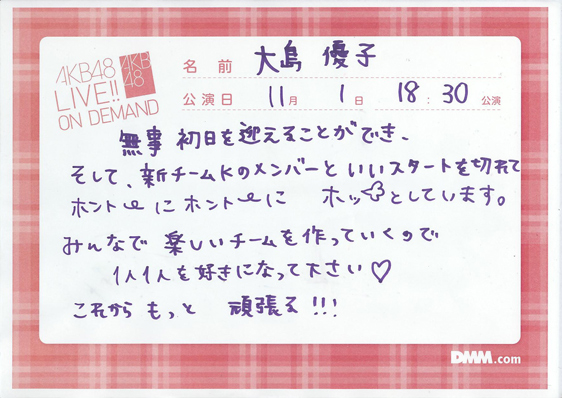 AKB48
LIVE!!
ON DEMAND
AKB
48
名前 大島 優子
公演日 11月 1日 18:30公演
無事 初日を迎えることができ、
そして、新チームKのメンバーといいスタートを切れて
ホントーにホントーに ホッとしています。
みんなで 楽しいチームを作っていくので
1人1人を好きになって下さい♡
これから もっと 頑張る!!!
DMM.com